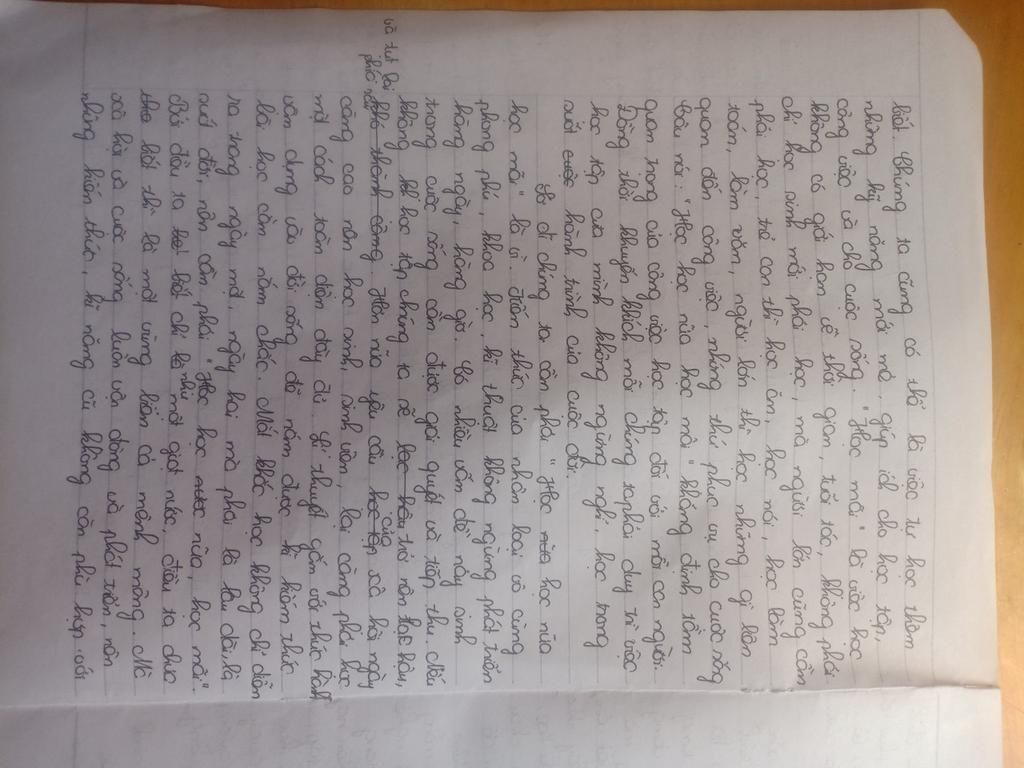 biết. Chúng ta cũng có thể là việc tự học thêm
những kỹ năng mới mẻ, giúp ích cho học tập,
công việc và cho cuộc sống. "Học mãi" là việc học
không có giới hạn về thời gian, tuổi tác, không phải
chỉ học sinh mới phải học, mà người lớn cũng cần
phải học, trẻ con thì học ăn, học nói, học làm
toán, làm văn, người lớn thì học những gì liên
quan đến công việc, những thứ phục vụ cho cuộc sống
Câu nói: "Học học nữa học mãi" khẳng định tầm
quan trọng của công việc học tập đối với mỗi con người.
Đồng thời khuyến khích mỗi chúng ta phải duy trì việc
học tập của mình không ngừng nghỉ, học trong
suốt cuộc hành trình của cuộc đời.
Sở dĩ chúng ta cần phải "Học nữa học nữa
học mãi" là vì. Kiến thức của nhân loại vô cùng
phong phú, khoa học, kĩ thuật không ngừng phát triển
hàng ngày, hàng giờ. Có nhiều vấn đề nảy sinh
trong cuộc sống cần được giải quyết và tiếp thu. Nếu
không khi học tập chúng ta sẽ lạc hậu, trở nên lạc hậu,
và tụt lại
phía sau
khó thành công. Hơn nữa yêu cầu học tập của xã hội ngày
càng cao nên học sinh, sinh viên, lại càng phải học
một cách toàn diện đầy đủ. Lí thuyết gắn với thực hành
vận dụng vào đời sống để nắm được kiếm thức
bài học cần nắm chắc. Mặt khác học không chỉ diễn
ra trong ngày một, ngày hai mà phải là lâu dài là
suốt đời, nên cần phải "Học học nước nữa, học mãi".
Bởi điều ta biết biết chỉ là như một giọt nước, điều ta chưa
biết thì là một vùng biển cả mênh mông. Mà
xã hội và cuộc sống luôn vận động và phát triển, nên
những kiến thức, kĩ năng cũ không còn phù hợp với